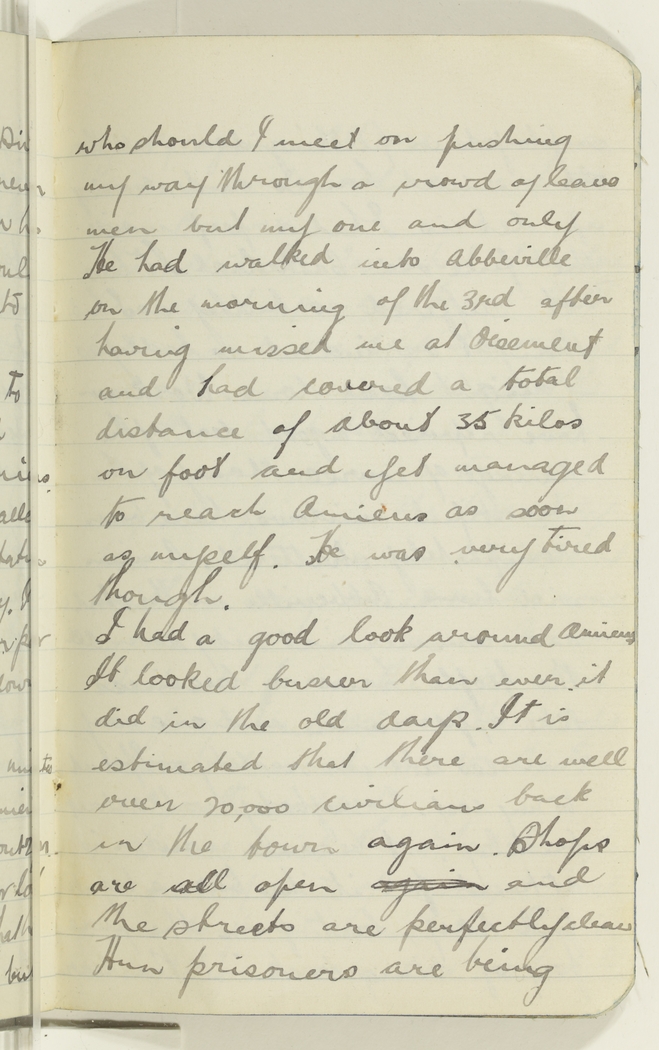 who should I meet on pushing
my way through a crowd of leave
men but my one and only
He had walked into Abbeville
on the morning of the 3rd after
having missed me at Oisement
and had covered a total
distance of about 35 kilos
on foot and yet managed
to reach Amiens as soon
as myself. He was very tired
though.
I had a good look around Amiens
It looked busier than ever it
did in the old days. It is
estimated that there are well
over 70,000 civilians back
in the town again. Shops
are all open again and
the streets are perfectly clean
Hun prisoners are being